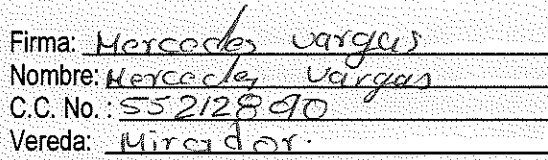 Firma: Mercedes vargas
Nombre: Mercedes vargas
C.C. No.: 55212890
Vereda: Mirador.